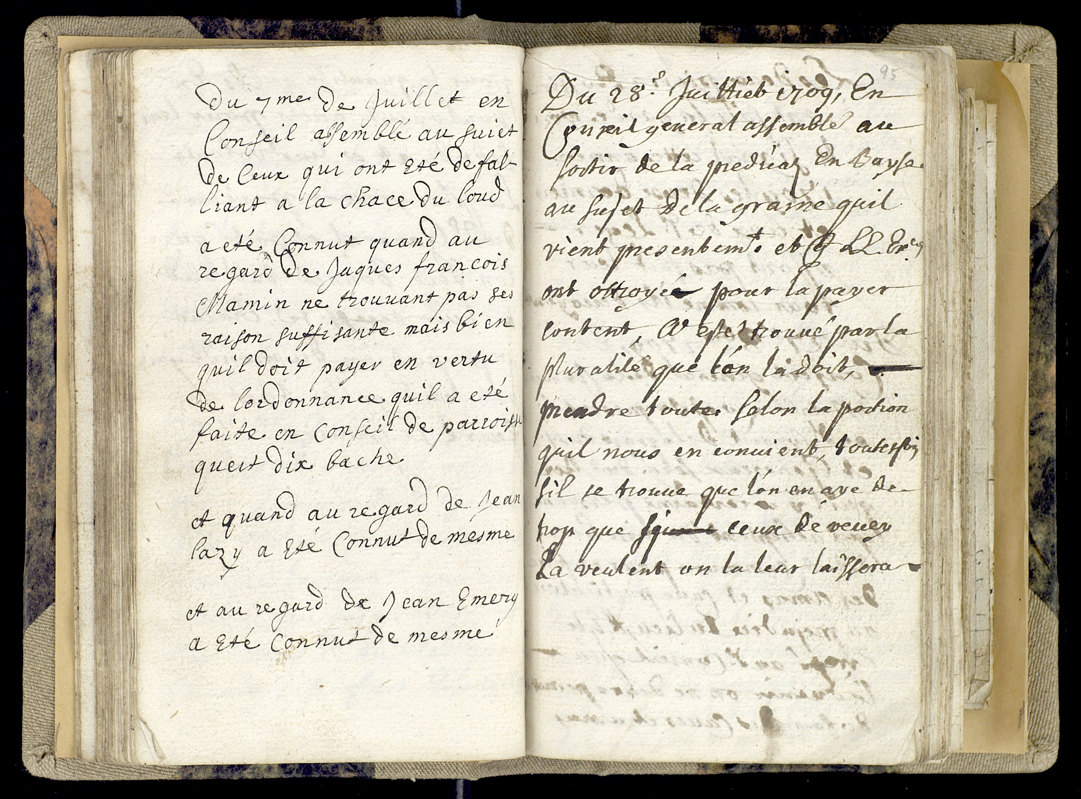 Du 7me de Juillet en
Conseil assemblé au suiet
de Ceux qui ont Eté defal-
liant a la chace du loud
a eté Connut quand au
regard de Jaques francois
Mamin ne trouuant pas ses
raison suffisante mais bien
quil doit payer en vertu
de lordonnance quil a eté
faite en Conseil de parroisse
quest dix bache
et quand au regard de Jean
lazy a Eté Connut de mesme
et au regard de Jean Emery
a Eté Connut de mesme
95
Du 28.e Juilliet 1709, En
Conseil general assemblé au
sortir de la predicaõ En
au sujet De la graine quil
vient presentemt. et q LL. Exces
ont ottroyé pour la payer
content, A esté trouué par la
pluralité que lón la doit,
prendre toute, selon la potion
quil nous en conuient, toutesfois
sil se trouue que lón en aye de-
trop que ceux De veuey
La veulent on la leur laissera